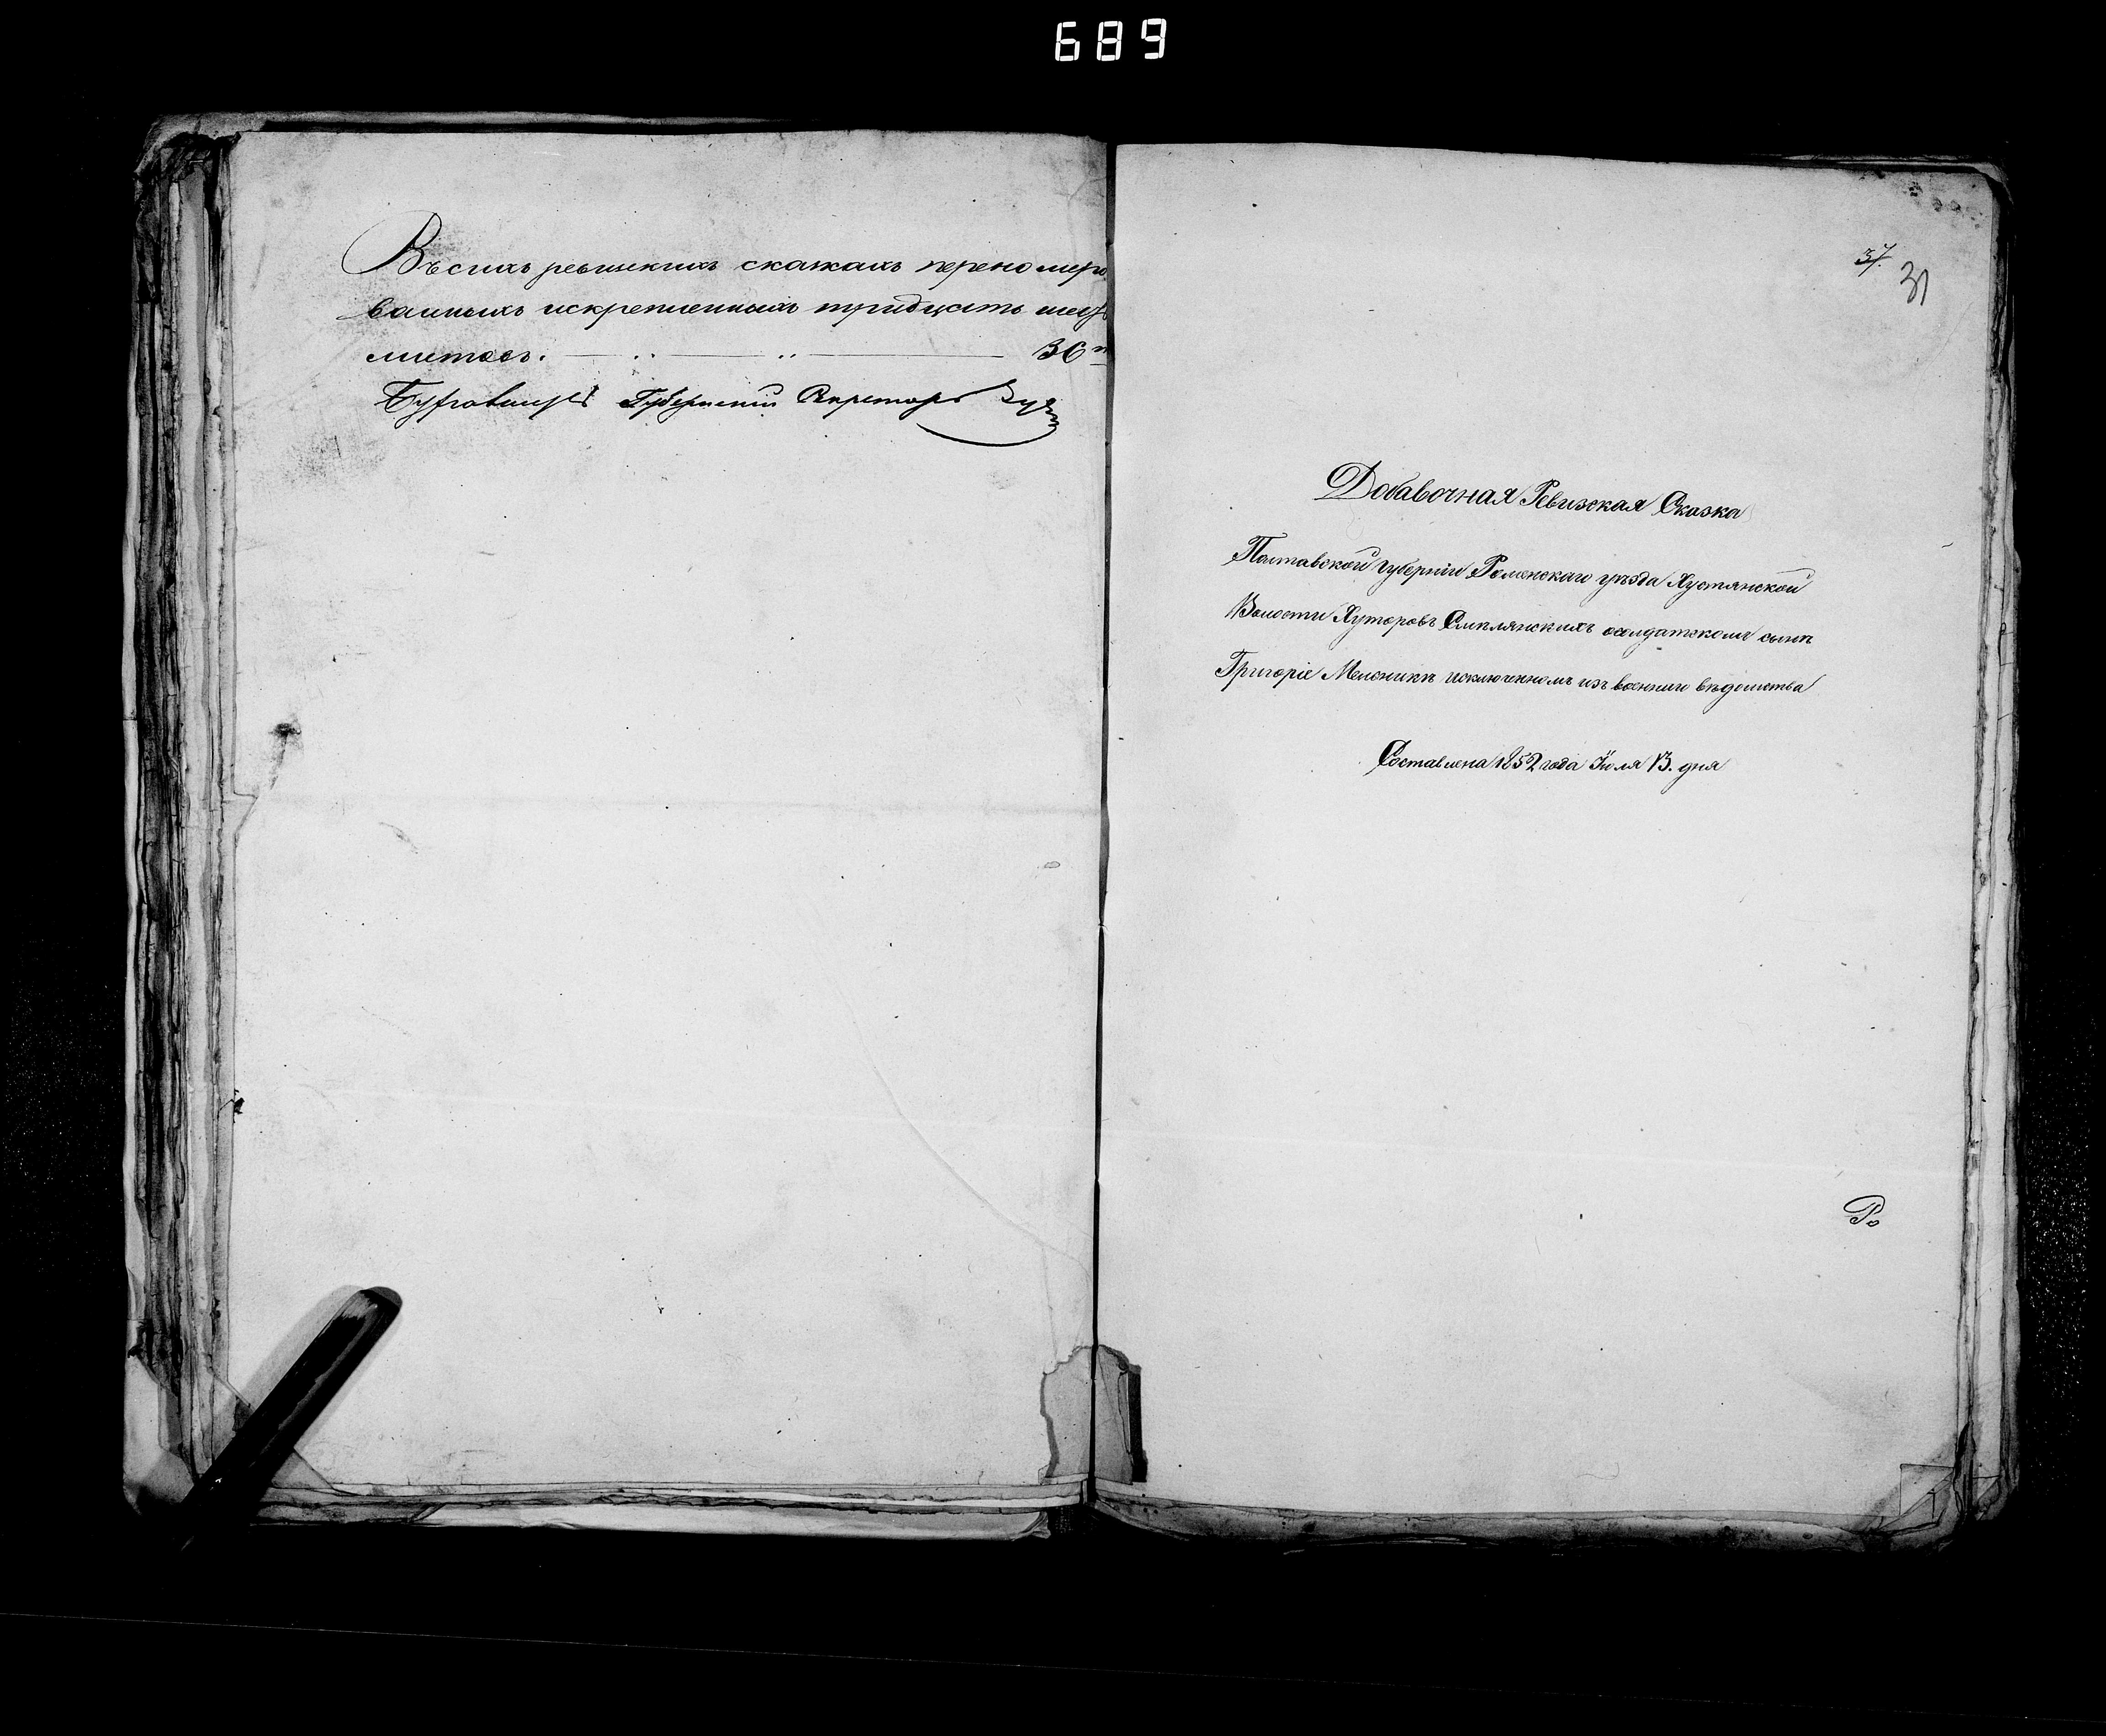 689
Въ сихъ ревизкихъ сказкахъ переномеро
ванныхъ искрепленныхъ тридцать шес
листовъ. 36
Губернский Секретарь
37.
31
Добавочная Ревизская Сказка
Полтавской губернiи Роменскаго уѣзда Хустянской
Волости Хуторовъ Смѣлянскихъ осолдатскомъ сынѣ
Григорiе Мельникѣ исключенномъ изъ военнаго вѣдомства
Составлена 1852 года Iюля 13. дня
Ро